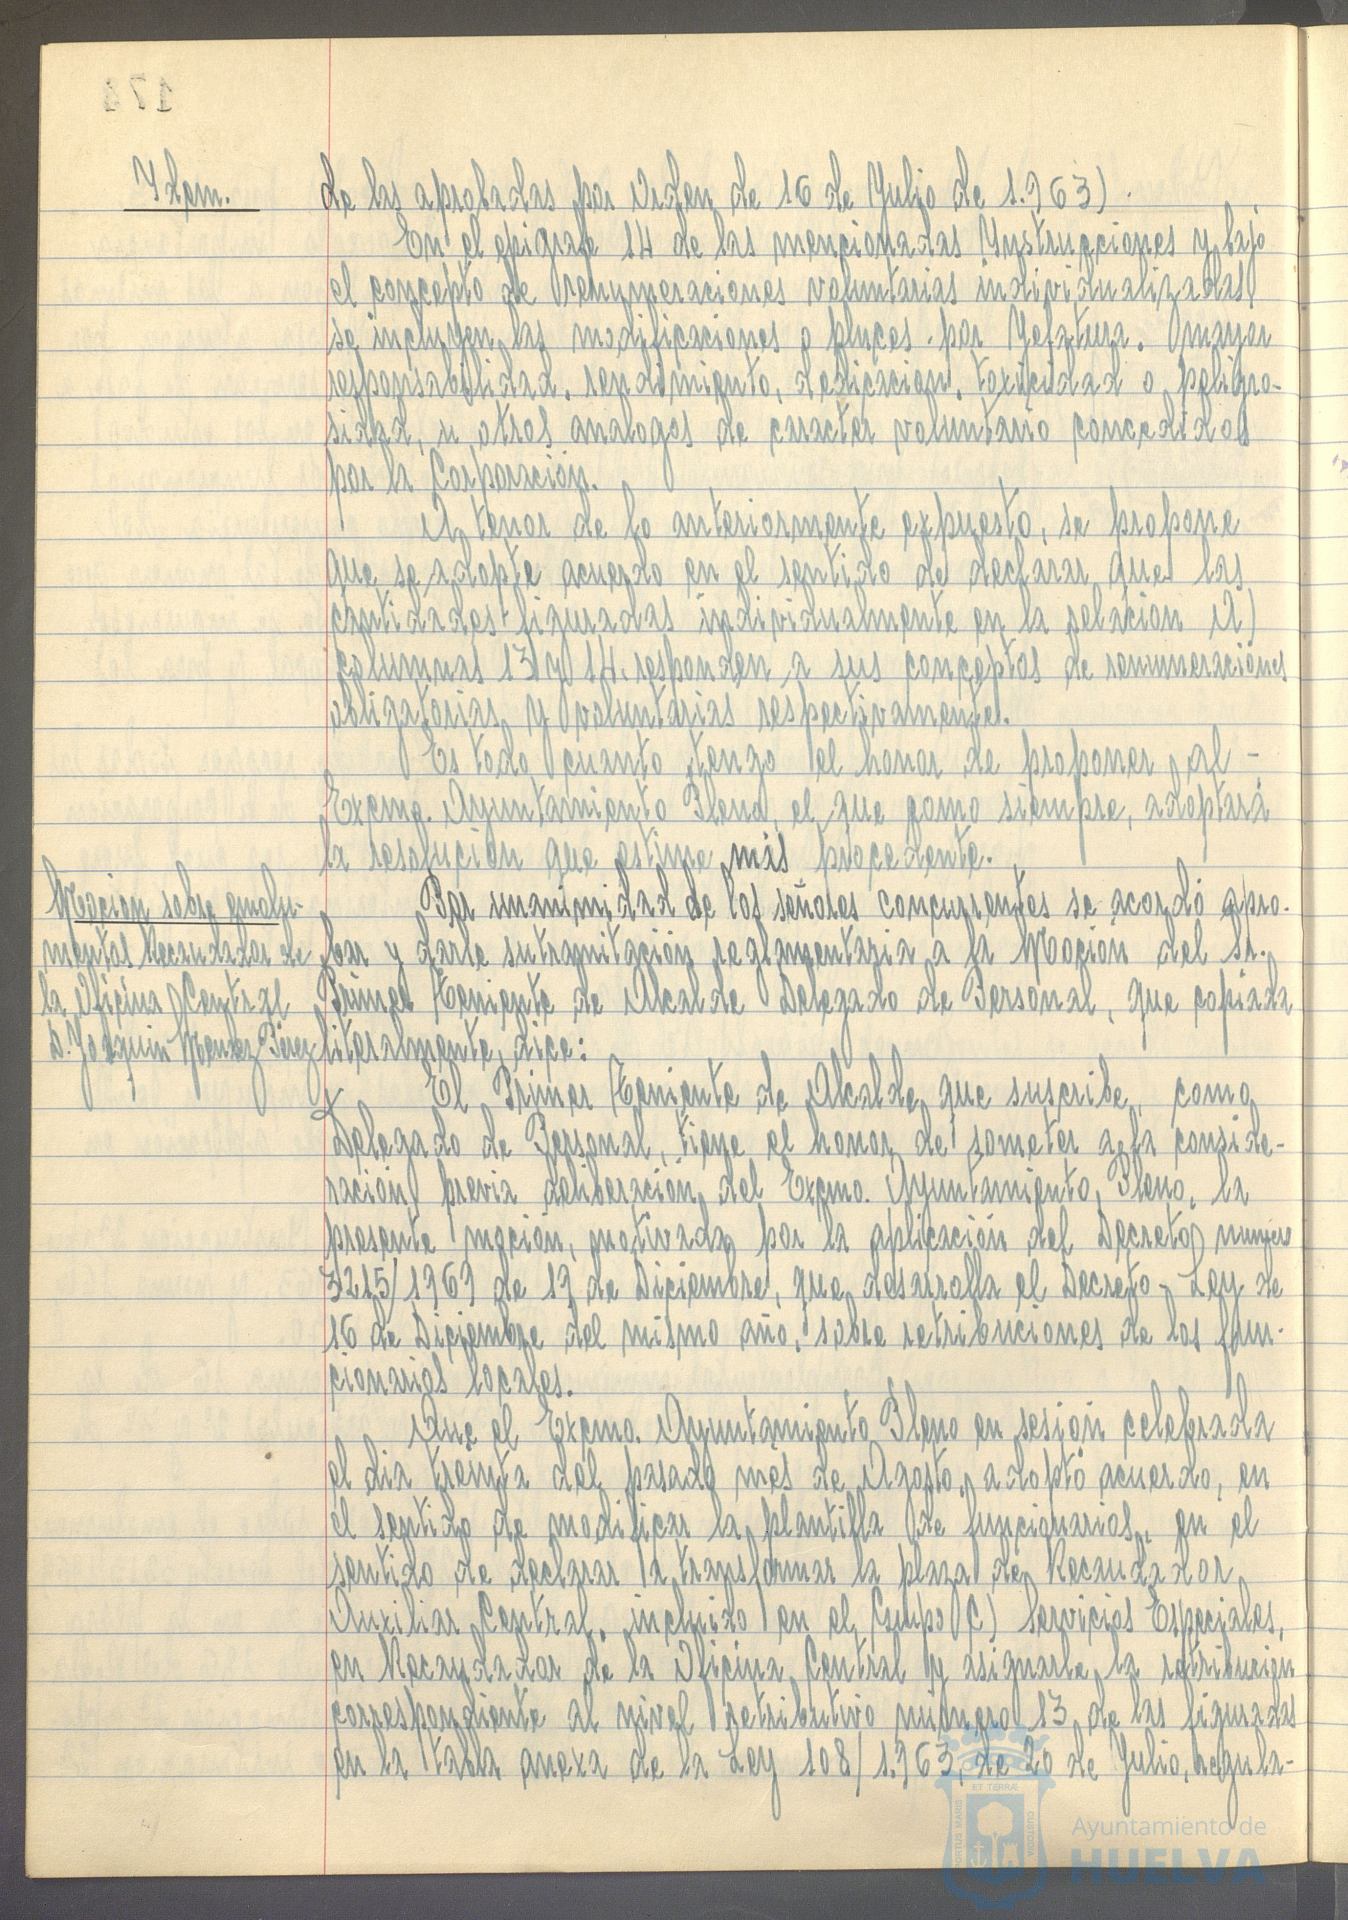 174
Ydem.
de las aprobadas por Orden de 16 de Julio de 1.963).
En el epigrafe 14 de las mencionadas Ynstrucciones y bajo
el concepto de remuneraciones voluntarias individualizadas,
se incluyen las modificaciones o pluses por Jefatura. mayor
responsabilidad, rendimiento, dedicacion, toxicidad o peligro-
sidad, u otros analogos de caracter voluntario concedidos
por la Corporación.
A tenor de lo anteriormente expuesto, se propone
que se adopte acuerdo en el sentido de declarar que las
cantidades figuradas individualmente en la relacion A)
columnas 13 y 14, responden a sus conceptos de remuneraciones
obligatorias y voluntarias respectivamente.
Es todo cuanto tengo el honor de proponer al -
Excmo. Ayuntamiento Pleno, el que como siempre, adoptará
la resolucion que estime más procedente.
Mocion sobre emolu-
mentos Recaudador de
la Oficina Central
D. Joaquin Mendez Perez
Por unanimidad de los señores concurrentes se acordó apro-
bar y darle su tramitación reglamentaria a la Moción del Sr.
Primer Teniente de Alcalde Delegado de Personal, que copiada
literalmente, dice:
El Primer Teniente de Alcalde que suscribe, como
Delegado de Personal, tiene el honor de someter a la conside-
ración, previa deliberación del Excmo. Ayuntamiento Pleno, la
presente moción, motivada por la aplicación del Decreto numero
3215/1969 de 19 de Diciembre, que desarrolla el Decreto-Ley de
16 de Diciembre del mismo año, sobre retribuciones de los fun-
cionarios locales.
Que el Excmo. Ayuntamiento Pleno en sesión celebrada
el dia treinta del pasado mes de Agosto, adoptó acuerdo, en
el sentido de modificar la plantilla de funcionarios, en el
sentido de declarar a transformar la plaza de Recaudador
Auxiliar Central, incluido en el Grupo C) Servicios Especiales,
en Recaudador de la Oficina Central y asignarle la retribucion
correspondiente al nivel retributivo número 13 de las figuradas
en la tabla anexa de la Ley 108/1.963, de 20 de Julio, regula-
ET TERRÆ
PORTUS MARIS
CUSTODIA
Ayuntamiento de
HUELVA